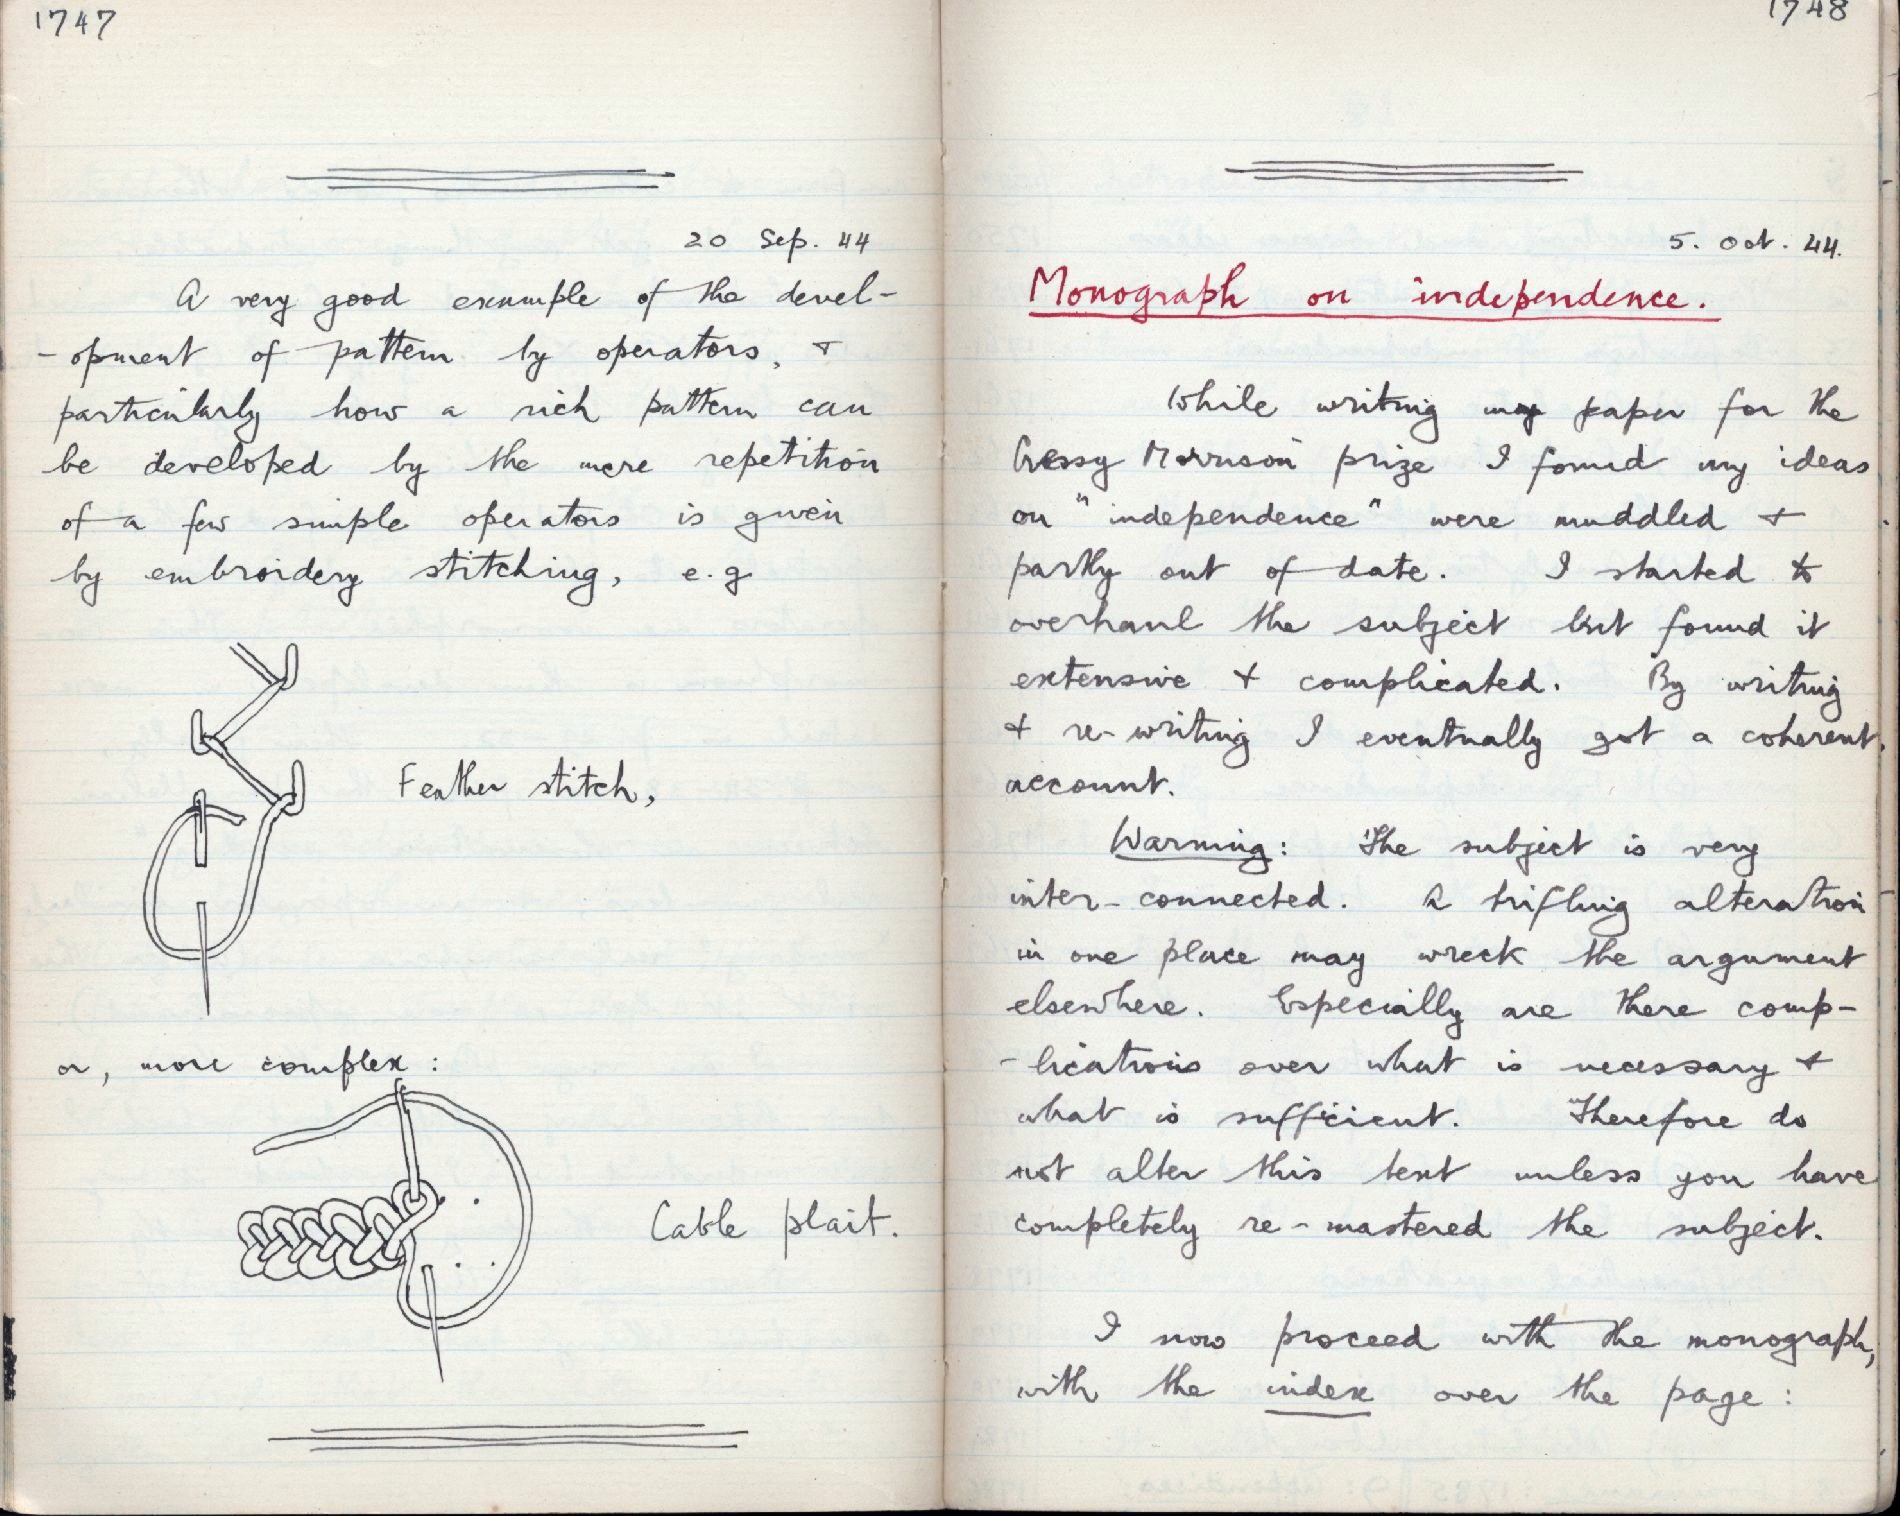 1747
20 Sep. 44
A very good example of the devel-
-opment of pattern by operators, +
particularly how a rich pattern can
be developed by the mere repetition
of a few simple operators is given
by embroidery stitching, e.g
Feather stitch,
or, more complex:
Cable plait.
1748
5. Oct. 44.
Monograph on independence.
While writing my paper for the
Cressy Morrison prize I found my ideas
on "independence" were muddled +
partly out of date. I started to
overhaul the subject but found it
extensive + complicated. By writing
+ re-writing I eventually got a coherent
account.
Warning: The subject is very
inter-connected. A trifling alteration
in one place may wreck the argument
elsewhere. Especially are there comp-
-lications over what is necessary +
what is sufficient. Therefore do
not alter this text unless you have
completely re-mastered the subject.
I now proceed with the monograph,
with the index over the page: